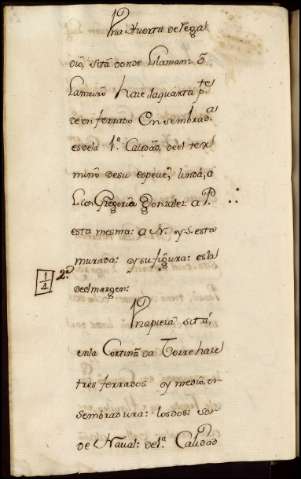 Una Huerta de Regal
dio, sita donde llaman: ô
Lameiro hace la quarta p.te
de un ferrado En sembrad.a
es de la 1.a Calidâd, de el ter
mino de su espeçie, linda, a
L. con Gregorio Gonzalez a P.
esta mesma: a N. y S. esta
murada: y su figura: es la
del margen:
1/2 2.a
Una pieza sita
en la Cortiña da Torre hace
tres ferrados y medio, en
sembradura: los dos: son
de Naval: de 1.a Calidâd